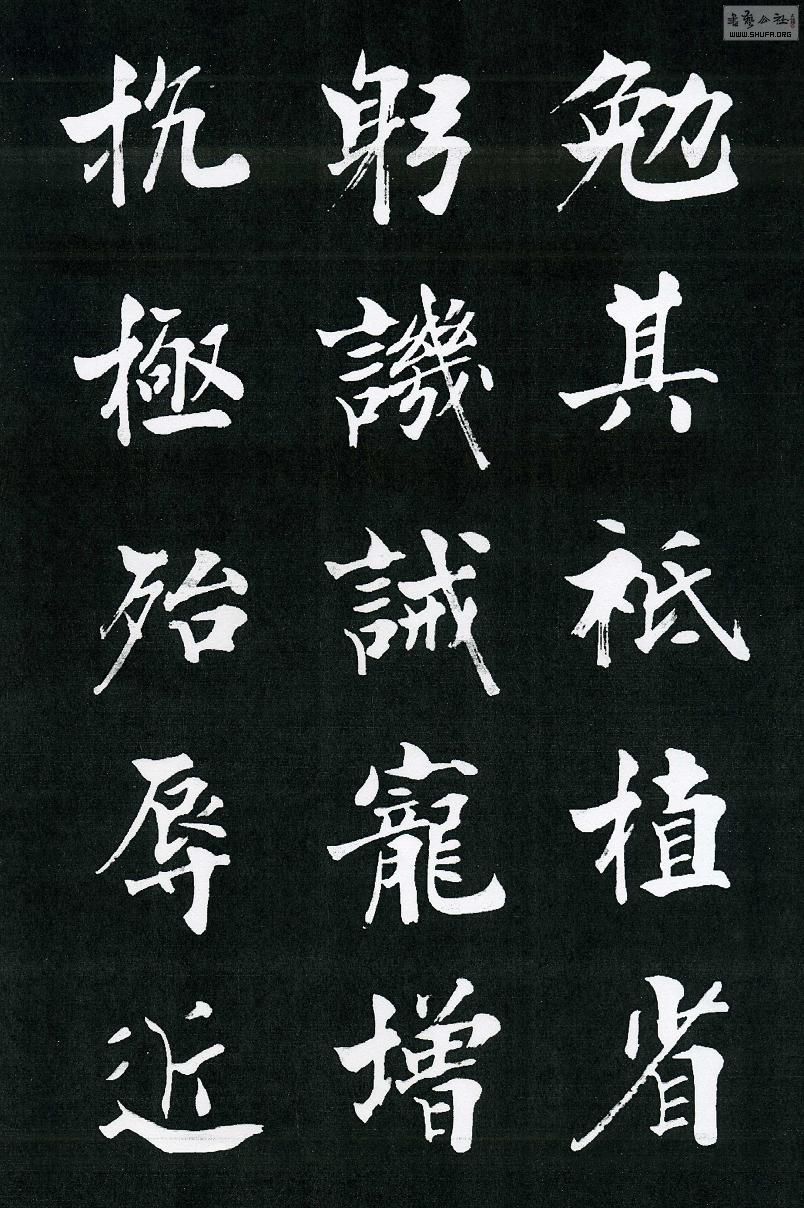 勉其祗植省
躬譏誡寵增
抗極殆辱近
書藝公社
WWW.SHUFA.ORG